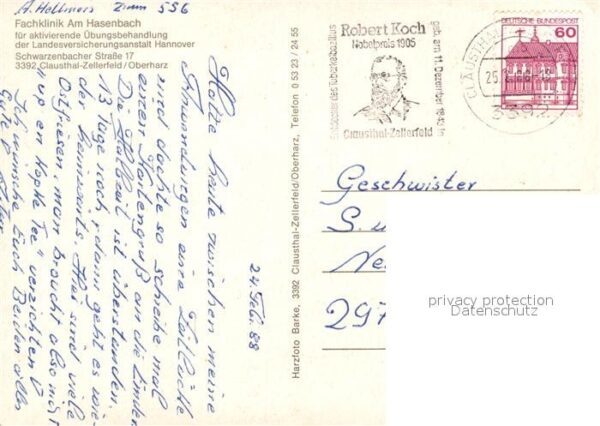 A. Hellmers Zimm 556
Fachklinik Am Hasenbach
für aktivierende Übungsbehandlung
der Landesversicherungsanstalt Hannover
Schwarzenbacher Straße 17
3392 Clausthal-Zellerfeld/Oberharz
24. Feb. 88
Hatte heute zwischen meine
Anwendungen eine Zeitlücke
und dachte so schreibe mal
einen Kartengruß an die Linden
Die Halbzeit ist überstanden.
13 Tage noch, dann geht es wie-
der heimwärts. Hier sind viele
Ostfriesen, man braucht also nicht
up en Koppke Tee" verzichten
Ich wünsche Euch Beiden alles
Gute
Harzfoto Barke, 3392 Clausthal-Zellerfeld/Oberharz, Telefon 0 53 23 / 24 55
Entdecker des Tuberkelbazillus
Robert Koch
Nobelpreis 1905
geb. am 11. Dezember 1843 in
Clausthal-Zellerfeld
CLAUSTHAL
25
3392
DEUTSCHE BUNDESPOST
60
Geschwister
S. u
Ne
297
privacy protection
Datenschutz